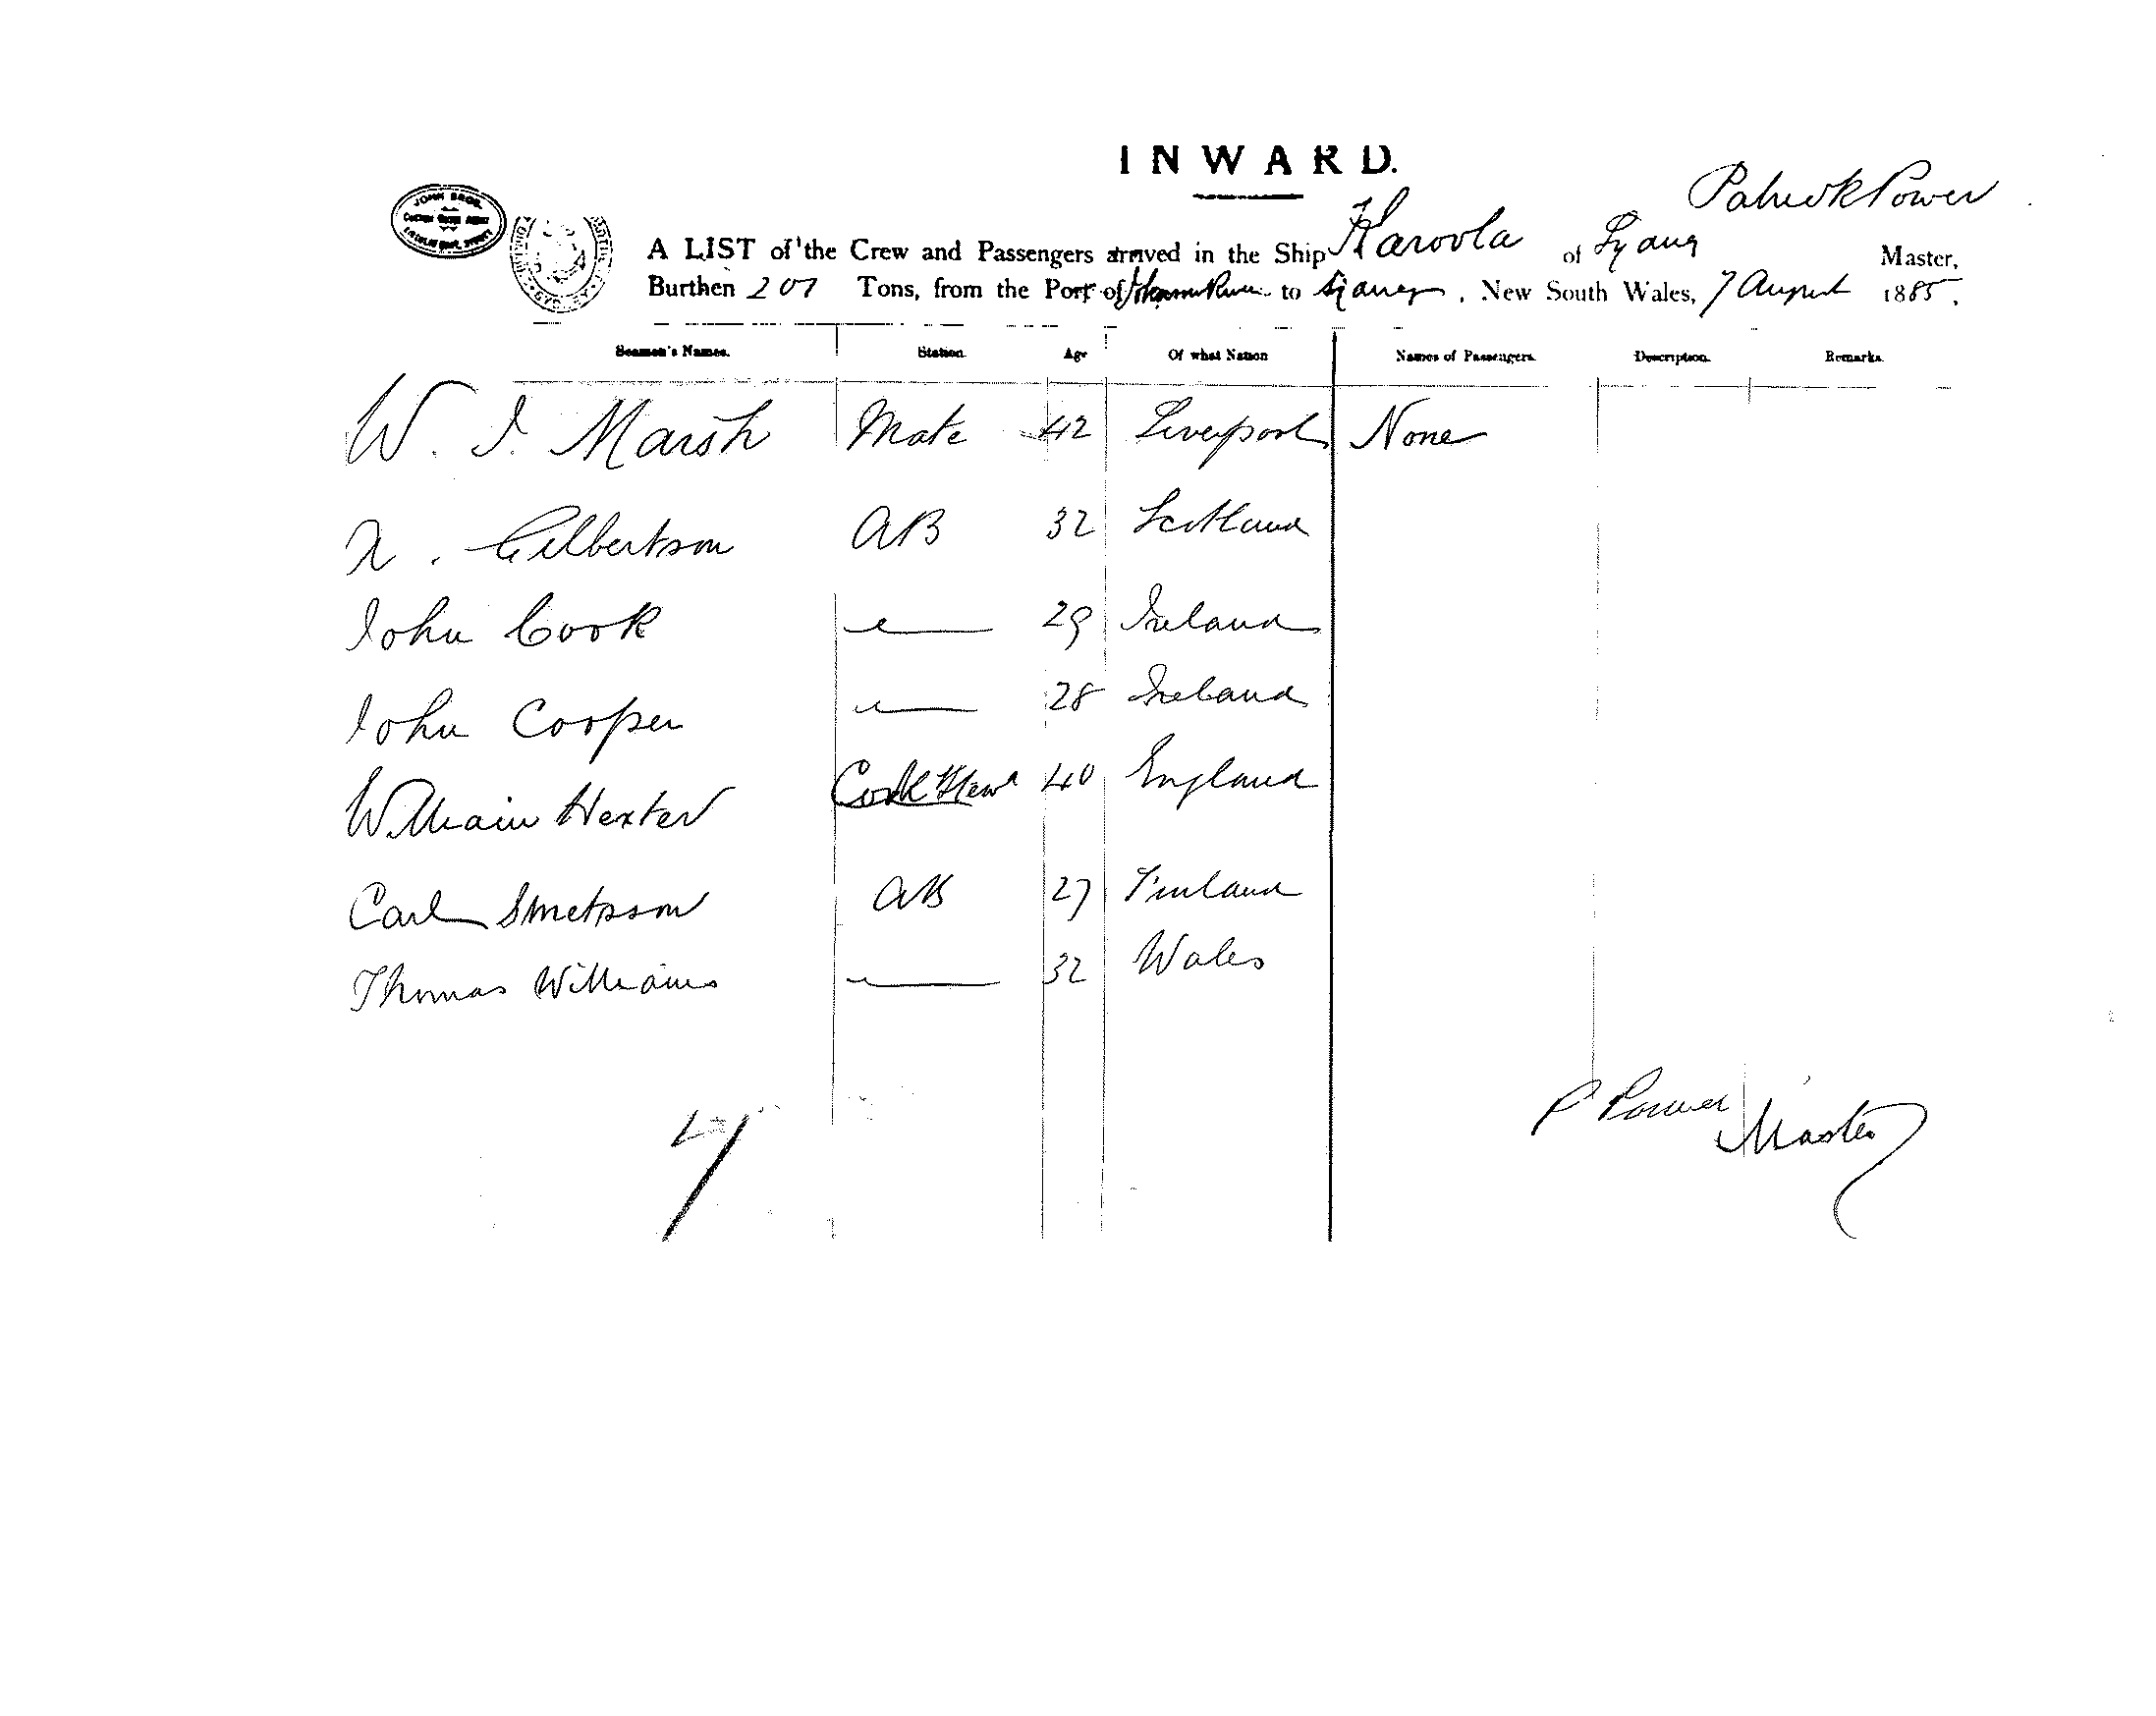 INWARD.
Patrick Power
JOHN BROS.
A LIST of the Crew and Passengers arrived in the Ship Karoola of Sydney Master,
Burthen 207 Tons, from the Port of River to Sydney, New South Wales, 7 August 1885.
Seamen's Names. Station. Age Of what Nation Names of Passengers. Description. Remarks.
W. J. Marsh Mate 42 Liverpool None
Gilbertson AB 32 Scotland
John Cook 29 Ireland
John Cooper 28 Ireland
William Hexter Cook & Stewd 40 England
Carl Smetsson AB 27 Finland
Thomas Williams 32 Wales
7
P Power
Master